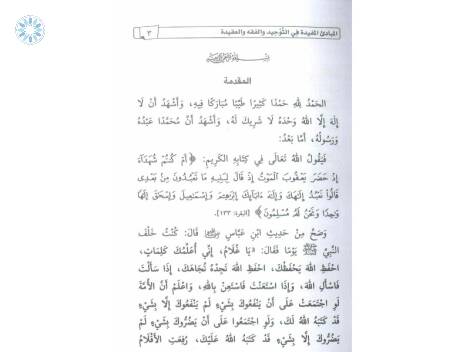 المبادئ المفيدة في التَّوحيد والفقه والعقيدة ٣
بِسْمِ اللَّهِ الرَّحْمَٰنِ الرَّحِيمِ
المقدمة
الحَمْدُ لِلَّهِ حَمْدًا كَثِيرًا طَيِّبًا مُبَارَكًا فِيهِ، وَأَشْهَدُ أَنْ لَا
إِلَهَ إِلَّا اللَّهُ وَحْدَهُ لَا شَرِيكَ لَهُ، وَأَشْهَدُ أَنَّ مُحَمَّدًا عَبْدُهُ
وَرَسُولُهُ، أَمَّا بَعْدُ:
فَيَقُولُ اللَّهُ تَعَالَى فِي كِتَابِهِ الكَرِيمِ: ﴿أَمْ كُنتُمْ شُهَدَآءَ
إِذْ حَضَرَ يَعْقُوبَ الْمَوْتُ إِذْ قَالَ لِبَنِيهِ مَا تَعْبُدُونَ مِنْ بَعْدِى
قَالُوا۟ نَعْبُدُ إِلَٰهَكَ وَإِلَٰهَ ءَابَآئِكَ إِبْرَٰهِۦمَ وَإِسْمَٰعِيلَ وَإِسْحَٰقَ إِلَٰهًا
وَٰحِدًا وَنَحْنُ لَهُۥ مُسْلِمُونَ﴾ [البقرة: ١٣٣].
وَصَحَّ مِنْ حَدِيثِ ابْنِ عَبَّاسٍ قَالَ: كُنْتُ خَلْفَ
النَّبِيِّ ﷺ يَوْمًا فَقَالَ: «يَا غُلَامُ، إِنِّي أُعَلِّمُكَ كَلِمَاتٍ،
احْفَظِ اللهَ يَحْفَظْكَ، احْفَظِ اللهَ تَجِدْهُ تُجَاهَكَ، إِذَا سَأَلْتَ
فَاسْأَلِ اللهَ، وَإِذَا اسْتَعَنْتَ فَاسْتَعِنْ بِاللهِ، وَاعْلَمْ أَنَّ الأُمَّةَ
لَوِ اجْتَمَعَتْ عَلَى أَنْ يَنْفَعُوكَ بِشَيْءٍ لَمْ يَنْفَعُوكَ إِلَّا بِشَيْءٍ
قَدْ كَتَبَهُ اللهُ لَكَ، وَلَوِ اجْتَمَعُوا عَلَى أَنْ يَضُرُّوكَ بِشَيْءٍ لَمْ
يَضُرُّوكَ إِلَّا بِشَيْءٍ قَدْ كَتَبَهُ اللهُ عَلَيْكَ، رُفِعَتِ الأَقْلَامُ